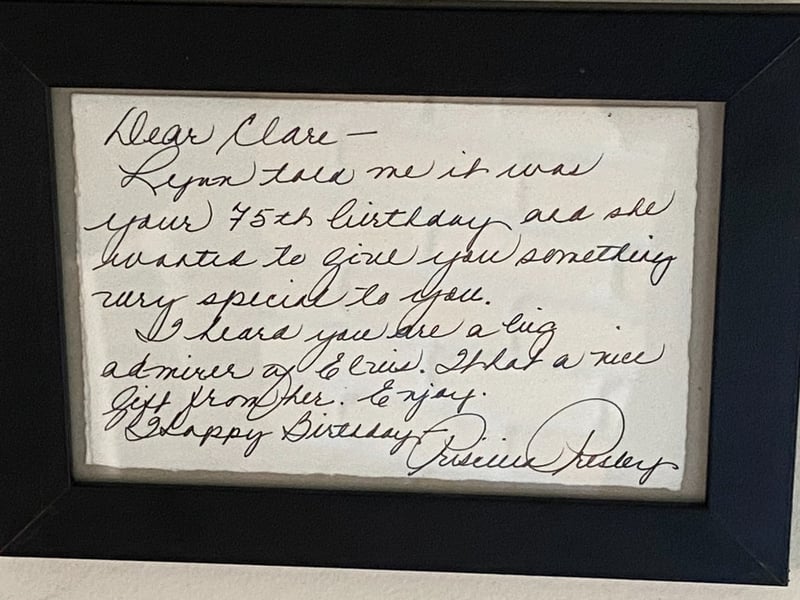 Dear Clare —
Lynn told me it was
your 75th birthday and she
wanted to give you something
very special to you.
I heard you are a big
admirer of Elvis. What a nice
gift from her. Enjoy.
Happy Birthday
Priscilla Presley